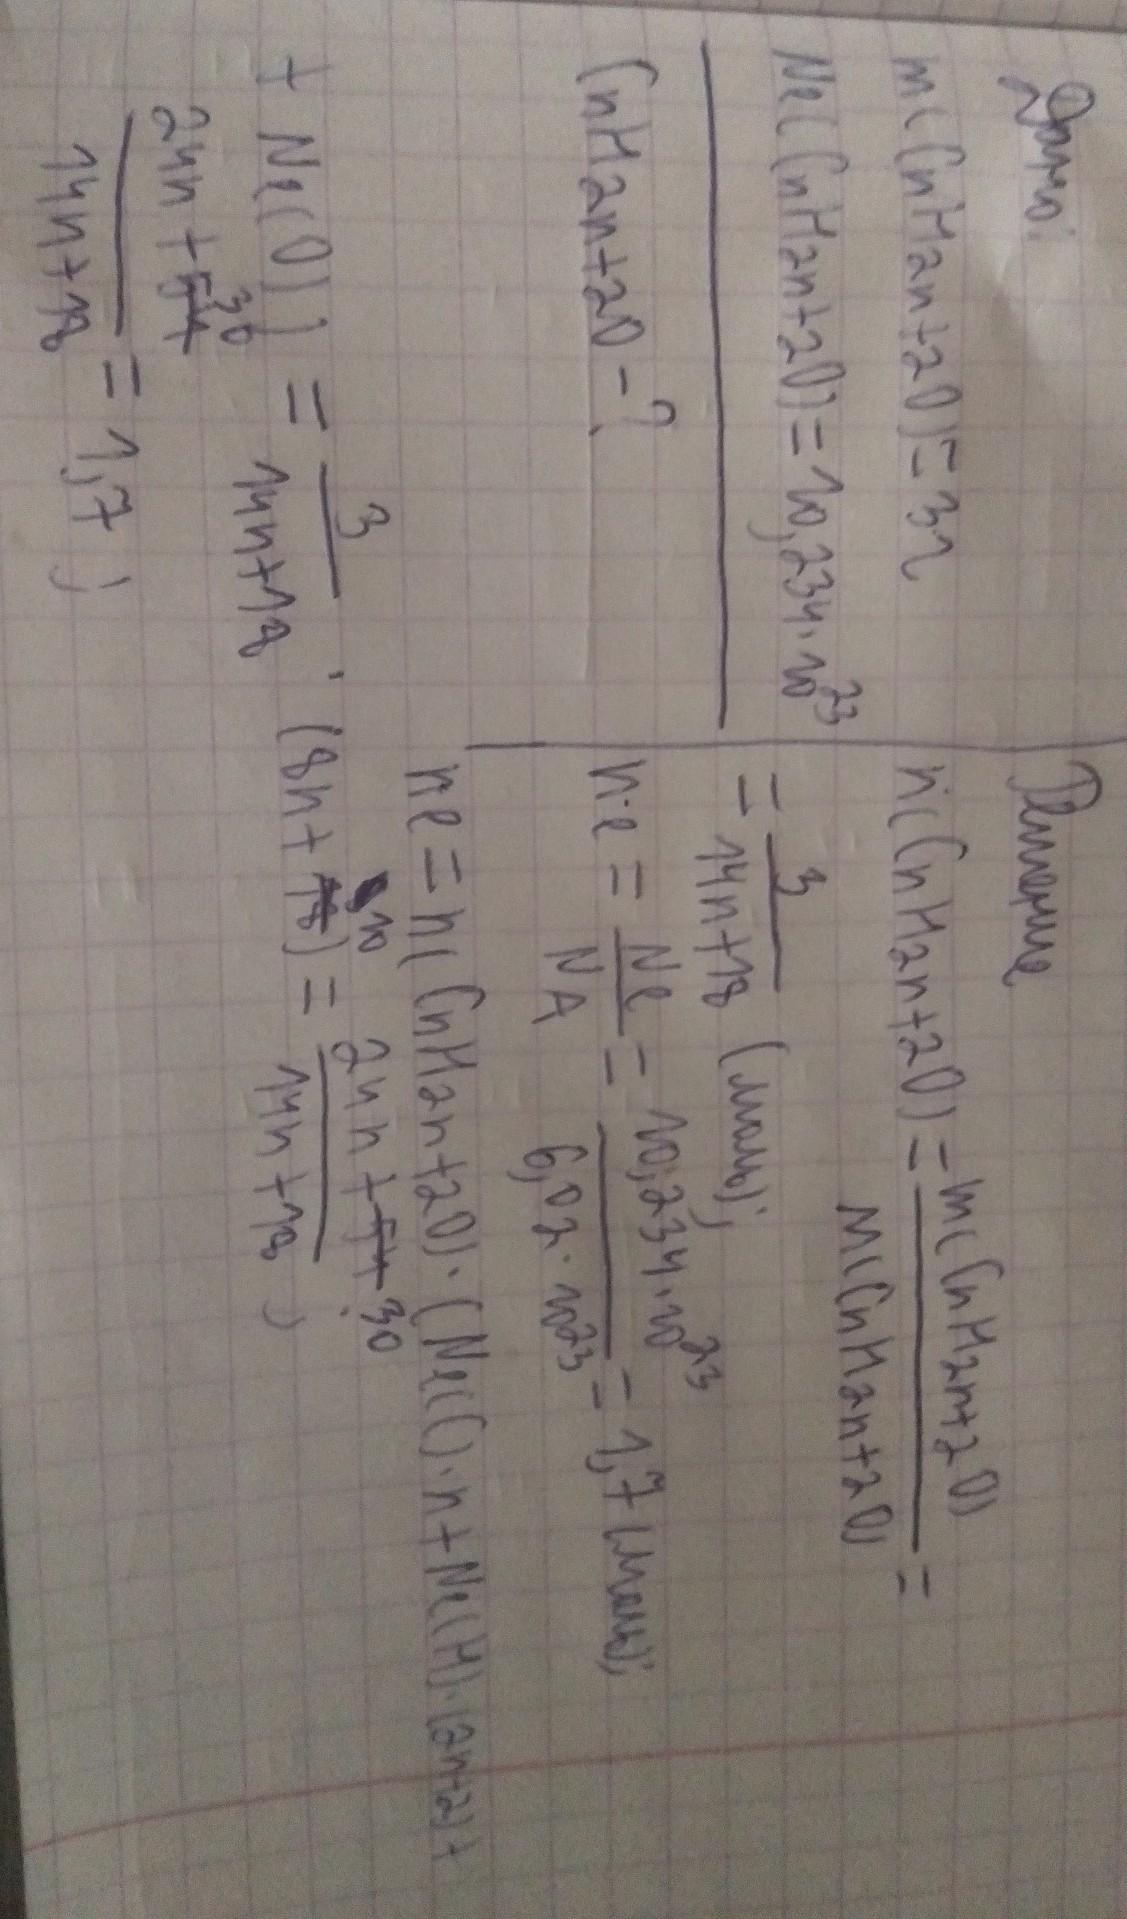 Дано:
m(CnH2n+2O)=3г
Ne(CnH2n+2O)=10,234·10²³
CnH2n+2O-?
Решение
n(CnH2n+2O)=m(CnH2n+2O)/M(CnH2n+2O)=
=3/14n+18 (моль);
ne=Ne/NA=10,234·10²³/6,02·10²³=1,7(моль);
ne=n(CnH2n+2O)·(Ne(C)·n+Ne(H)·(2n+2)+
+Ne(O))=3/14n+18·(8n+10)=24n+30/14n+18;
24n+30/14n+18=1,7;